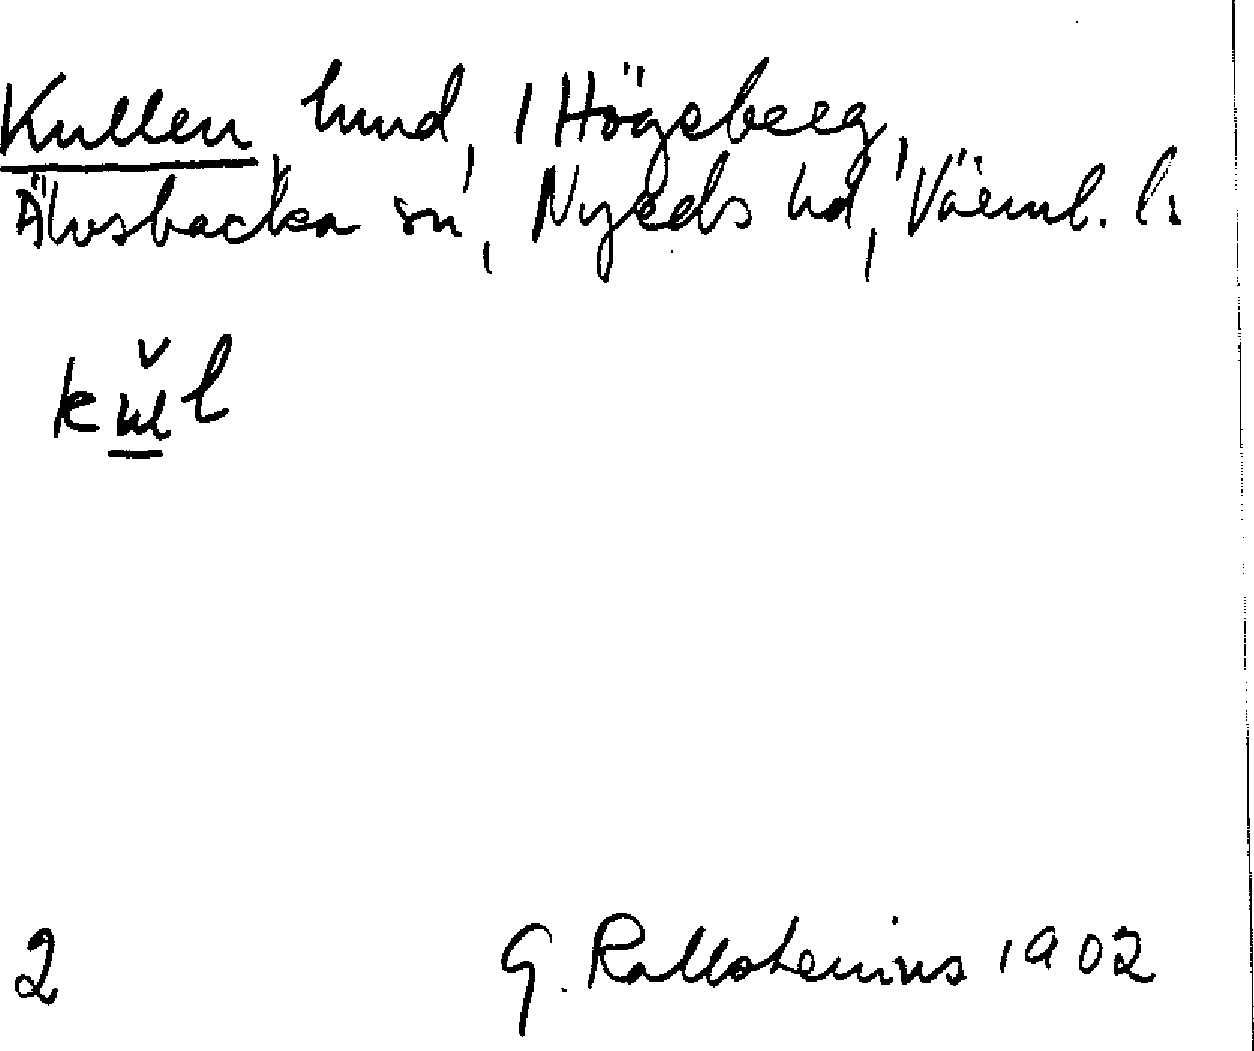 Kullen, hmd, 1 Högsberg,
Älvsbacka sn, Nyeds hd, Värml. l:
kŭl
2 G. Kallstenius 1902